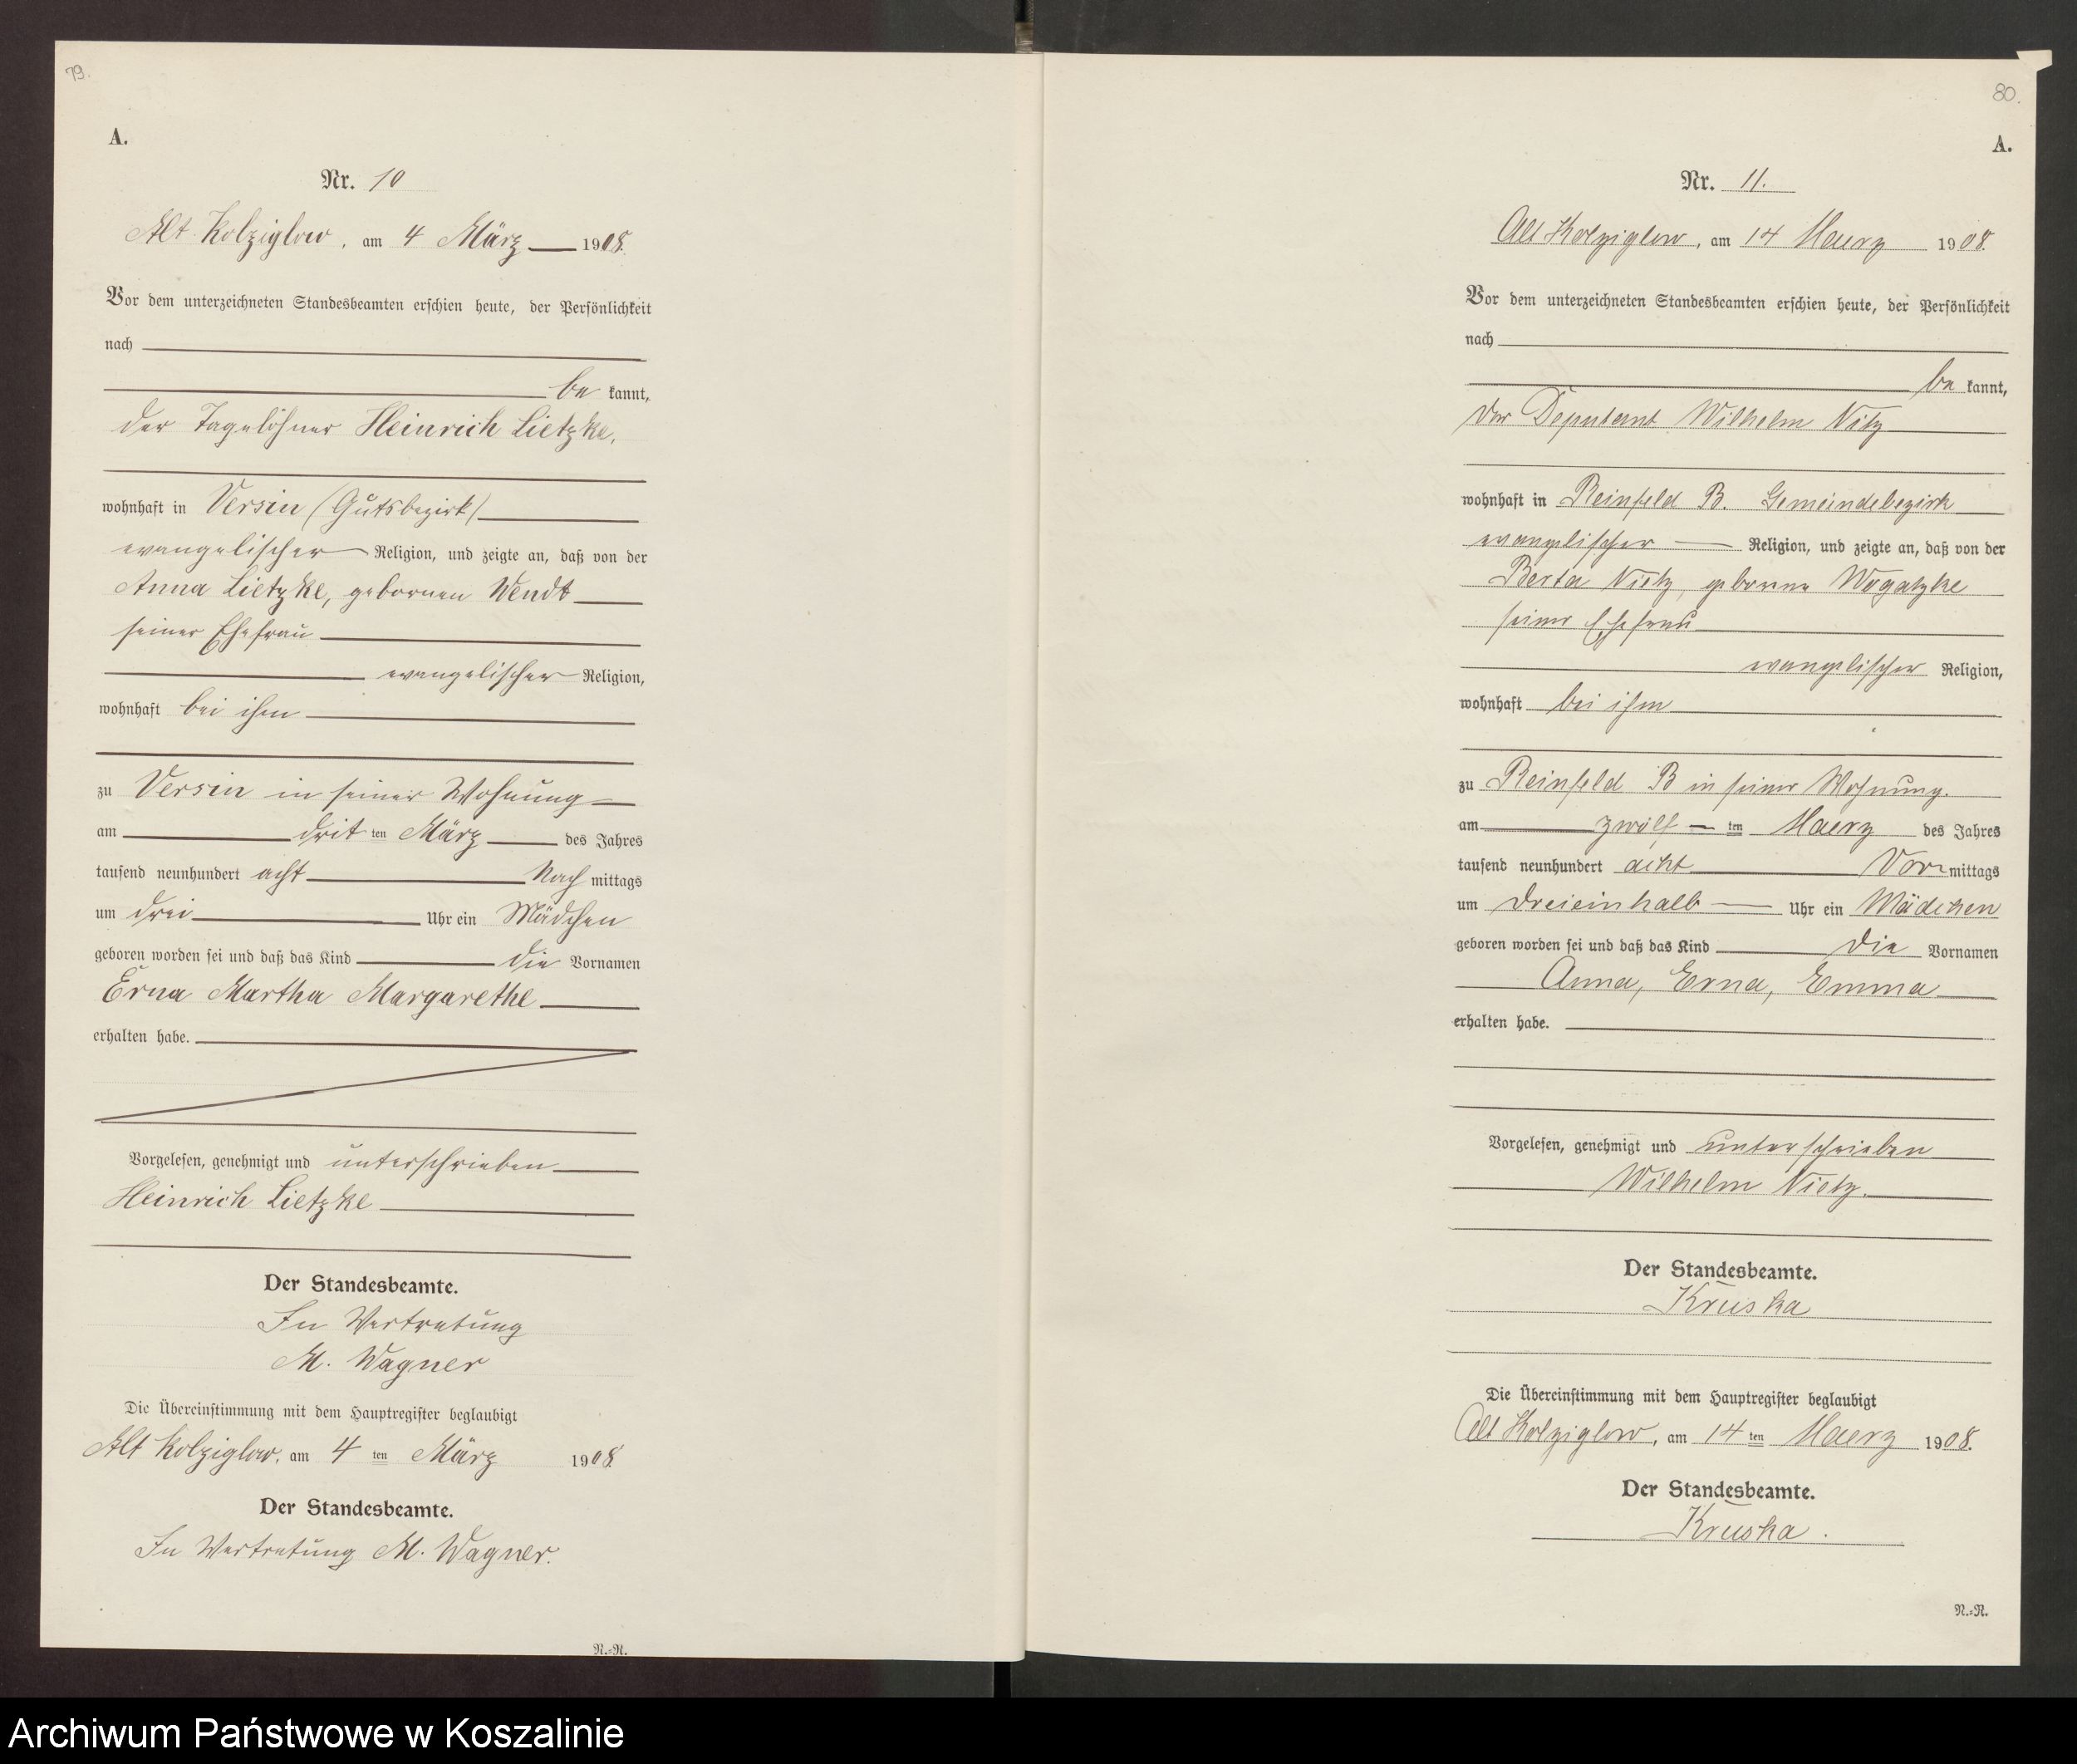 79.
A.
Nr. 10
Alt Kolziglow, am 4 März 1908.
Vor dem unterzeichneten Standesbeamten erschien heute, der Persönlichkeit
nach
be kannt,
der Tagelöhner Heinrich Lietzke,
wohnhaft in Versin (Gutsbezirk)
evangelischer Religion, und zeigte an, daß von der
Anna Lietzke, gebornen Wendt
seiner Ehefrau
evangelischer Religion,
wohnhaft bei ihm
zu Versin in seiner Wohnung
am drit ten März des Jahres
tausend neunhundert acht Nach mittags
um drei Uhr ein Mädchen
geboren worden sei und daß das Kind die Vornamen
Erna Martha Margarethe
erhalten habe.
Vorgelesen, genehmigt und unterschrieben
Heinrich Lietzke
Der Standesbeamte.
In Vertretung
M. Wagner
Die Übereinstimmung mit dem Hauptregister beglaubigt
Alt Kolziglow, am 4 ten März 1908
Der Standesbeamte.
In Vertretung M. Wagner.
N.=N.
80.
A.
Nr. 11.
Alt Kolziglow, am 14 Maerz 1908.
Vor dem unterzeichneten Standesbeamten erschien heute, der Persönlichkeit
nach
be kannt,
der Deputant Wilhelm Nitz
wohnhaft in Reinfeld B. Gemeindebezirk
evangelischer Religion, und zeigte an, daß von der
Berta Nietz, geborene Wogatzke
seiner Ehefrau
evangelischer Religion,
wohnhaft bei ihm
zu Reinfeld B in seiner Wohnung.
am zwölf ten Maerz des Jahres
tausend neunhundert acht Vor mittags
um dreieinhalb Uhr ein Mädchen
geboren worden sei und daß das Kind die Vornamen
Anna, Erna, Emma
erhalten habe.
Vorgelesen, genehmigt und unterschrieben
Wilhelm Nietz.
Der Standesbeamte.
Kruska
Die Übereinstimmung mit dem Hauptregister beglaubigt
Alt Kolziglow, am 14 ten Maerz 1908.
Der Standesbeamte.
Kruska.
N.=N.
Archiwum Państwowe w Koszalinie